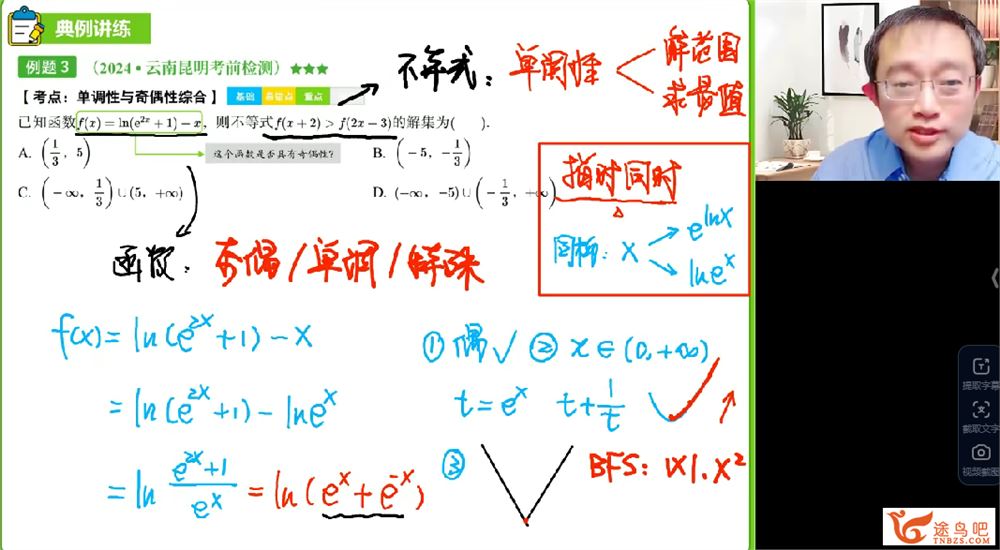 典例讲练
例题3 (2024·云南昆明考前检测) ★★★
【考点:单调性与奇偶性综合】 基础 易错点 重点
已知函数f(x)=ln(e^{2x}+1)-x, 则不等式f(x+2)>f(2x-3)的解集为( ).
A. (1/3, 5)
这个函数是否具有奇偶性?
B. (-5, -1/3)
C. (-∞, 1/3)∪(5, +∞)
D. (-∞, -5)∪(-1/3, +∞)
不等式: 单调性
解范围
求最值
指对同时
同构: x
e^{lnx}
ln e^x
函数: 奇偶/单调/特殊
f(x)=ln(e^{2x}+1)-x
=ln(e^{2x}+1)-lne^x
=ln (e^{2x}+1)/e^x =ln(e^x+e^{-x})
① 偶√ ② x∈(0,+∞)
t=e^x t+1/t
③
BFS: |x|、x²
提取字幕
截取文字
视频截图
途鸟吧
TNBZS.COM